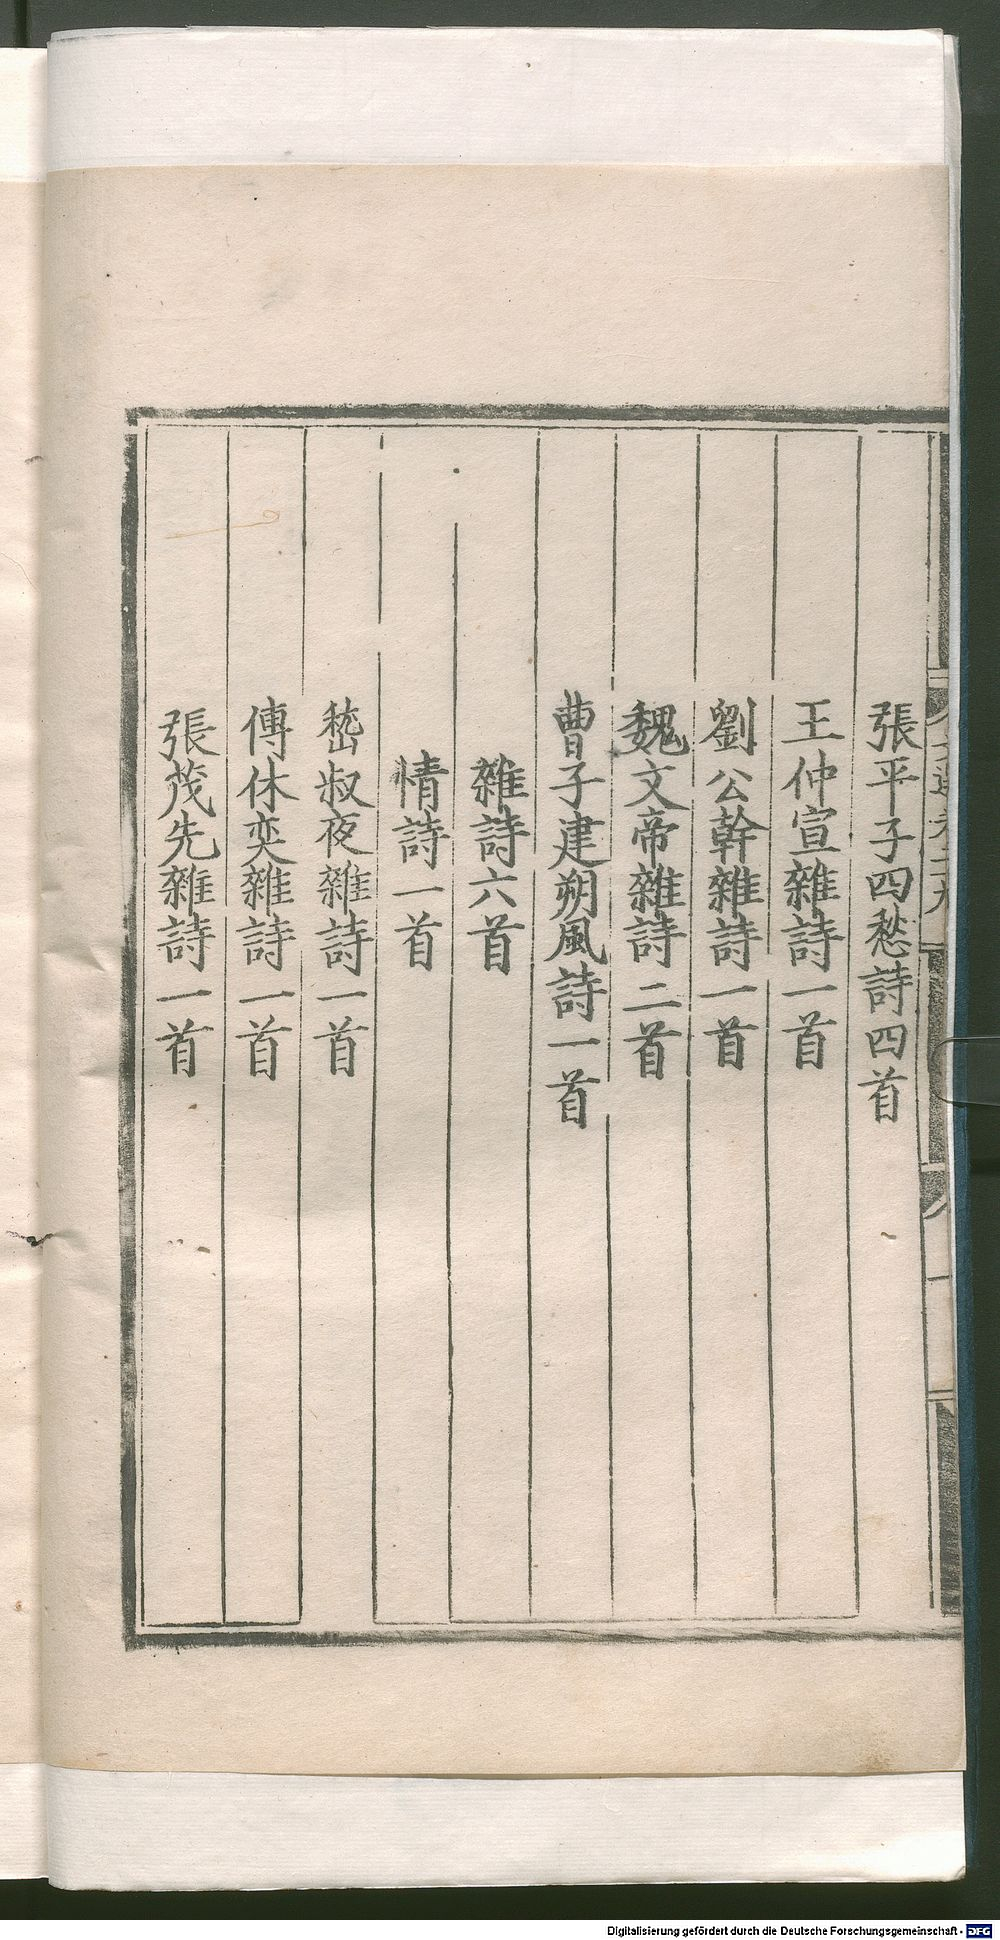 張平子四愁詩四首
王仲宣雜詩一首
劉公幹雜詩一首
魏文帝雜詩二首
曹子建朔風詩一首
雜詩六首
情詩一首
嵇叔夜雜詩一首
傅休奕雜詩一首
張茂先雜詩一首
Digitalisierung gefördert durch die Deutsche Forschungsgemeinschaft - DFG